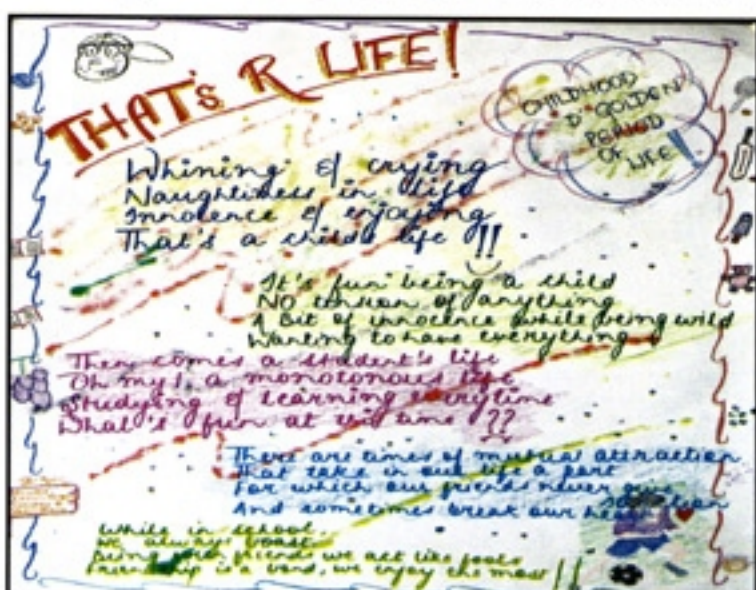 THAT'S R LIFE!
CHILDHOOD
D' GOLDEN
PERIOD
OF LIFE!
Whining & crying
Naughtiness in life
Innocence & enjoying
That's a child's life !!
It's fun being a child
NO tension of anything
A bit of innocence while being wild
Wanting to have everything
Then comes a student's life
Oh my!, a monotonous life
Studying & learning everytime
What's fun at this time ??
There are times of mutual attraction
That take in our life a part
For which our friends never give
sanction
And sometimes break our heart
While in school,
We always boast
Being with friends we act like fools
Friendship is a bond, we enjoy the most !!